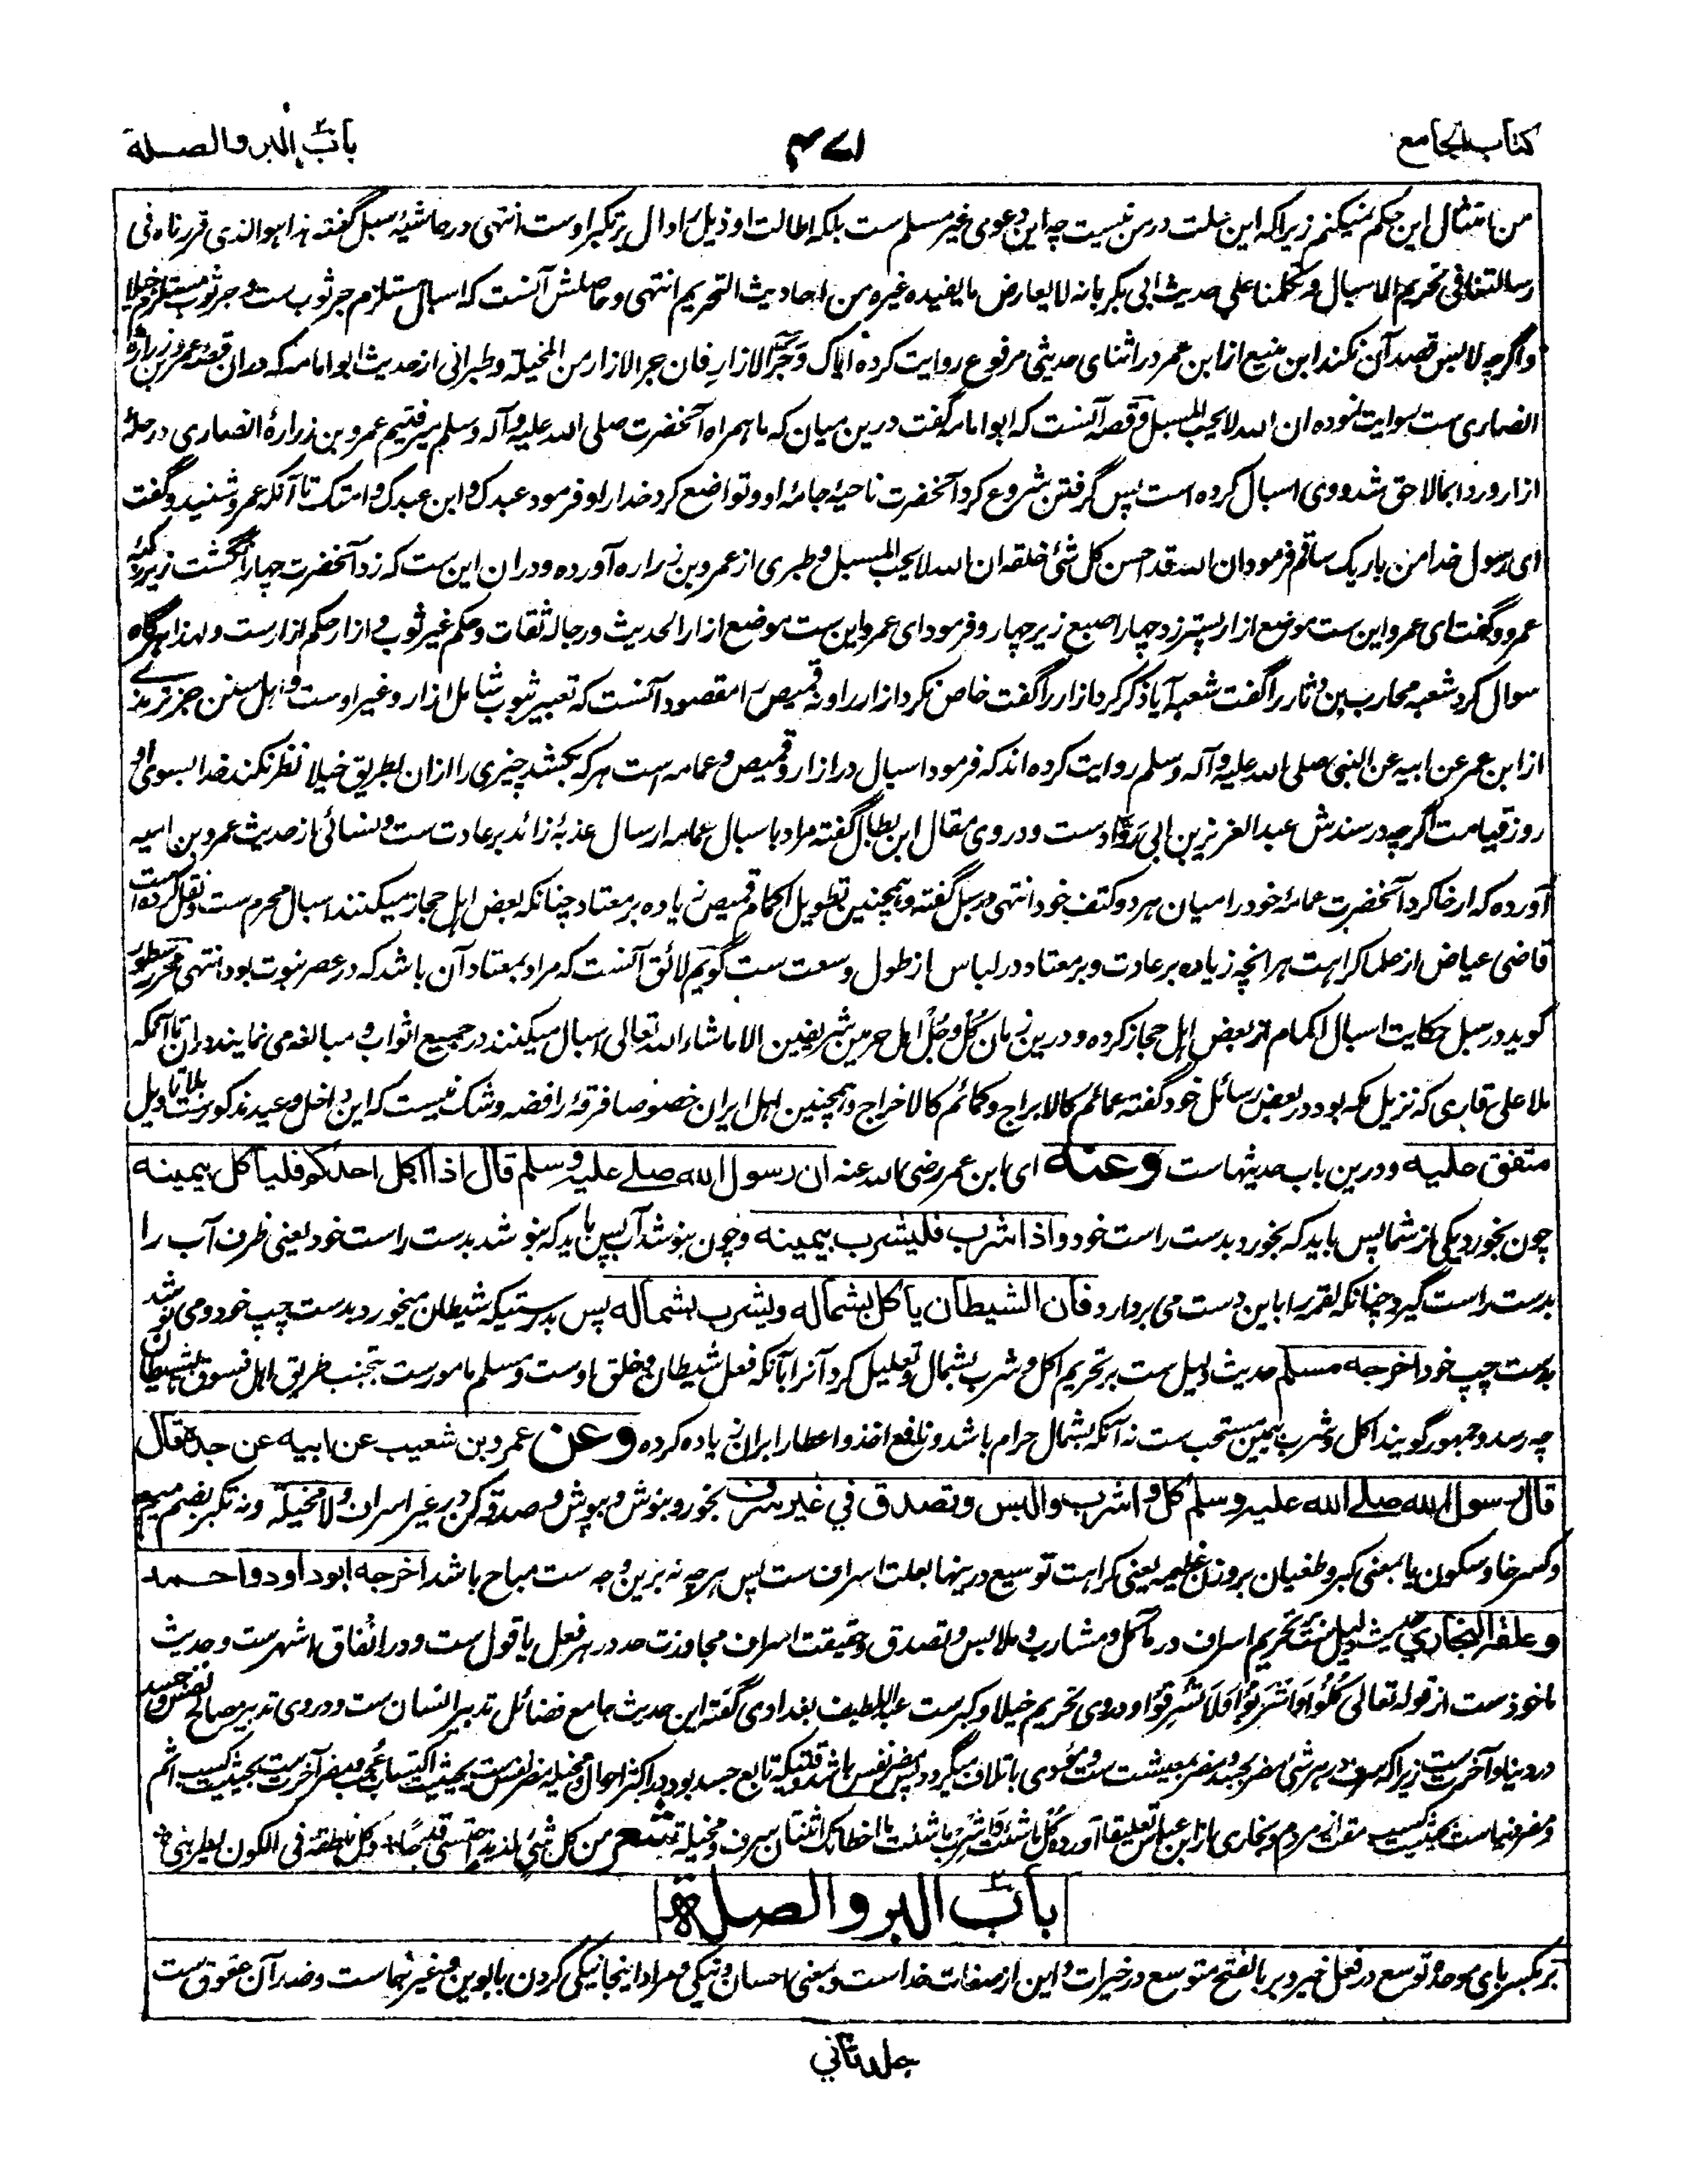 کتاب الجامع
۴۷۱
باب البر والصلة
من امتثال این حکم نمیکنم زیرا که این علت در من نیست چه این دعوی غیر مسلم ست بلکه اطالت او ذیل را دال بر تکبر اوست انتهی و در حاشیهٔ سبل گفته هذا هو الذی قررناه فی
رسالتنا فی تحریم الاسبال و تکلمنا علی حدیث ابی بکر بانه لا یعارض ما یفیده غیره من احادیث التحریم انتهی و حاصلش آنست که اسبال مستلزم جر ثوب ست و جر ثوب مستلزم خیلا
واگرچه لابس قصد آن نکند ابن منیع از ابن عمر در اثنای حدیثی مرفوع روایت کرده ایاک وجر الازار فان جر الازار من المخیلة و طبرانی از حدیث ابو امامه که دران قصهٔ عمرو بن زراره
انصاری ست روایت نموده ان الله لا یحب المسبل و قصه آنست که ابو امامه گفت درین میان که ما همراه آنحضرت صلی الله علیه و آله وسلم میرفتیم عمرو بن زرارهٔ انصاری در حلهٔ
ازار و ردا بما لاحق شد و وی اسبال کرده است پس گرفتن شروع کرد آنحضرت ناحیهٔ جامهٔ او و تواضع کرد خدا را و فرمود عبدک و ابن عبدک و امتک تا آنکه عمرو شنید و گفت
ای رسول خدا من باریک ساقم فرمود ان الله قد احسن کل شئ خلقه ان الله لا یحب المسبل و طبری از عمرو بن زراره آورده و دران این ست که زد آنحضرت چهار انگشت زیر رکبهٔ
عمرو و گفت ای عمرو این ست موضع ازار پستر زد چهار اصبع زیر چهار و فرمود ای عمرو این ست موضع ازار الحدیث و رجاله ثقات و حکم غیر ثوب و ازار حکم ازارست و لهذا هرگاه
سوال کرد شعبه محارب بن دثار را گفت شعبه آیا ذکر کرد ازار را گفت خاص نکرد ازار را و نه قمیص را مقصود آنست که تعبیر بثوب شامل ازار و غیر اوست و اهل سنن جز ترمذی
از ابن عمر عن ابیه عن النبی صلی الله علیه و آله وسلم روایت کرده اند که فرمود اسبال در ازار و قمیص و عمامه است هر که بکشد چیزی را ازان بطریق خیلا نظر نکند خدا بسوی او
روز قیامت اگرچه در سندش عبد العزیز بن ابی رَوّاد ست و در وی مقال ابن بطال گفته مراد باسبال عمامه ارسال عذبهٔ زائد بر عادت ست و نسائی از حدیث عمرو بن امیه
آورده که ارخا کرد آنحضرت عمامهٔ خود را میان هر دو کتف خود انتهی در سبل گفته و همچنین تطویل اکمام قمیص زیاده بر معتاد چنانکه بعض اهل حجاز میکنند اسبال محرم ست و نقل کرده است
قاضی عیاض از علما کراهت هر آنچه زیاده بر عادت و بر معتاد در لباس از طول و سعت ست گویم لائق آنست که مراد بمعتاد آن باشد که در عصر نبوت بود انتهی محرر سطور
گوید در سبل حکایت اسبال اکمام از بعض اهل حجاز کرده و درین زمان کُل و جُل اهل حرمین شریفین الا ما شاء الله تعالی اسبال میکنند در جمیع اثواب و مبالغه می نمایند دران تا آنکه
ملا علی قاری که نزیل مکه بود در بعض رسائل خود گفته عمائم کالابراج و کمائم کالاخراج و همچنین اهل ایران خصوصا فرقهٔ رافضه و شک نیست که این داخل وعید مذکور ست بلا تاویل
متفق علیه و درین باب حدیثهاست وعنه ای ابن عمر رضی الله عنه ان رسول الله صلے علیه وسلم قال اذا اکل احدکم فلیاکل بیمینه
چون بخورد یکی از شما پس باید که بخورد بدست راست خود واذا شرب فلیشرب بیمینه و چون بنوشد آب پس باید که بنوشد بدست راست خود یعنی ظرف آب را
بدست راست گیرد چنانکه لقمه را باین دست می بردارد فان الشیطان یاکل بشماله ویشرب بشماله پس بدرستیکه شیطان میخورد بدست چپ خود و می نوشد
بدست چپ خود اخرجه مسلم حدیث دلیل ست بر تحریم اکل و شرب بشمال و تعلیل کرد آنرا بآنکه فعل شیطان و خلق اوست و مسلم مامورست بتجنب طریق اهل فسوق تا بشیطان
چه رسد و جمهور گویند اکل و شرب بیمین مستحب ست نه آنکه بشمال حرام باشد و نافع اخذ و اعطا را بران زیاده کرده وعن عمرو بن شعیب عن ابیه عن جده قال
قال رسول الله صلے الله علیه وسلم کل واشرب والبس وتصدق في غیر سرف بخور و بنوش و بپوش و صدقه کن در غیر اسراف ولا مخیلة و نه تکبر بضم میم
و کسر خا و سکون یا بمعنی کبر و طغیان بر وزن عظیمه یعنی کراهت توسیع درینها بعلت اسراف ست پس هر چه نه برین وجه ست مباح باشد اخرجه ابو داود واحمد
وعلقه البخاري حدیث دلیل ست بر تحریم اسراف در مآکل و مشارب و ملابس و تصدق و حقیقت اسراف مجاوزت حد در هر فعل یا قول ست و در انفاق اشهرست و حدیث
ماخوذست از قوله تعالی کُلُوْا وَاشْرَبُوْا وَلَا تُسْرِفُوْا و دروی تحریم خیلا و کبرست عبد اللطیف بغدادی گفته این حدیث جامع فضائل تدبیر انسان ست و دروی تدبیر مصالح نفس و جسد
در دنیا و آخرت ست زیرا که سرف در هر شی مضر بجسد و مضر بمعیشت ست و مؤدی باتلاف میگردد پس مضر نفس باشد وقتیکه تابع جسد بود در اکثر احوال و مخیله مضر نفس ست بحیثیت اکتساب عُجب و مضر آخرت ست بحیثیت کسب اثم
و مضر دنیاست بحیثیت کسب مقت از مردم و بخاری از ابن عباس تعلیقا آورده کُل ما شئت وَاشْرَب ما شئت ما اخطاتک اثنتان سرف و مخیلة شعر من کل شئ لذیذ احتسی قدحا وکل ناطقة فی الکون یطربنی
باب البر والصلة
بر بکسر بای موحده توسع در فعل خیر و بر بالفتح متوسع در خیرات و این از صفات خداست و بمعنی احسان و نیکی و مراد اینجا نیکی کردن بابوین و غیر نهماست و ضد آن عقوق ست
جلد ثاني